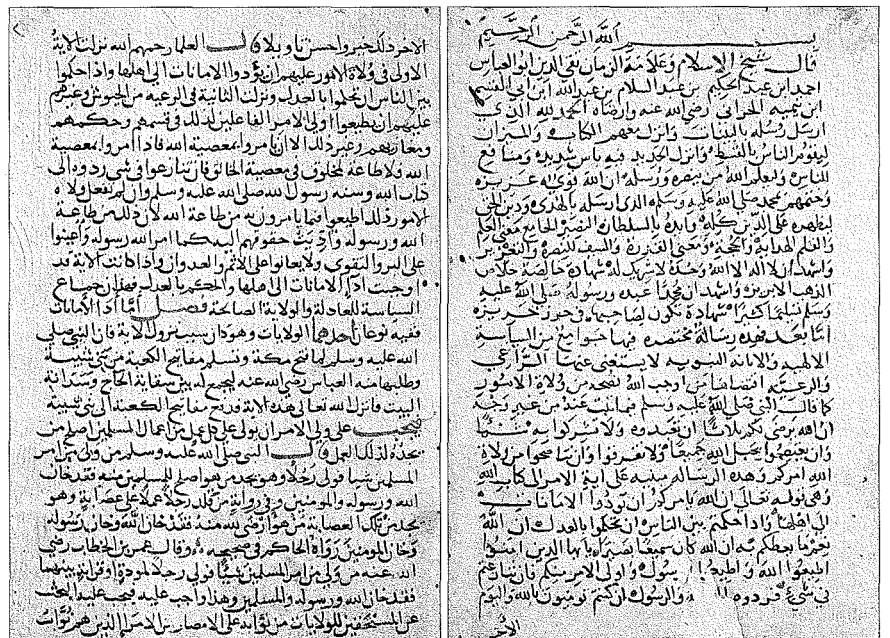 بسم الله الرحمن الرحيم
قال شيخ الاسلام وعلامة الزمان تقي الدين ابو العباس
احمد ابن عبد الحليم بن عبد السلام بن عبد الله ابن ابي القسم
ابن تيميه الحراني رضي الله عنه وارضاه الحمد لله الذي
ارسل رسله بالبينات وانزل معهم الكتاب والميزان
ليقوم الناس بالقسط وانزل الحديد فيه باس شديد ومنافع
للناس وليعلم الله من ينصره ورسله ان الله قوي عزيز
وختمهم بمحمد صلى الله عليه وسلم الذي ارسله بالهدى ودين الحق
ليظهره على الدين كله وايده بالسلطان النصير الجامع معنى العلم
والقلم للهداية والحجة ومعنى القدرة والسيف للنصرة والتعزير
واشهد ان لا اله الا الله وحده لا شريك له شهادة خالصة خلاص
الذهب الابريز واشهد ان محمدا عبده ورسوله صلى الله عليه
وسلم تسليما كثيرا شهادة تكون لصاحبها في حرز حريز
اما بعد فهذه رسالة مختصره فيها جوامع من السياسة
الالهيه والانابه النبويه لا يستغني عنها الراعي
والرعية اقتضاها من اوجب الله نصحه من ولاة الامور
كما قال النبي صلى الله عليه وسلم فيما ثبت عنه من غير وجه
ان الله يرضى لكم ثلاثا ان تعبدوه ولا تشركوا به شيا
وان تعتصموا بحبل الله جميعا ولا تفرقوا وان تناصحوا من ولاه
الله امركم وهذه الرسالة مبنيه على اية الامرا في كتاب الله
وهي قوله تعالى ان الله يامركم ان تودوا الامانات
الى اهلها واذا حكمتم بين الناس ان تحكموا بالعدل ان الله
نعما يعظكم به ان الله كان سميعا بصيرا يايها الذين امنوا
اطيعوا الله واطيعوا الرسول واولي الامر منكم فان تنازعتم
في شيء فردوه والرسول ان كنتم تومنون بالله واليوم
الاخر
الاخر ذلك خير واحسن تاويلا قال العلما رحمهم الله نزلت الاية
الاولى في ولاة الامور عليهم ان يودوا الامانات الى اهلها واذا حكموا
بين الناس ان يحكموا بالعدل ونزلت الثانية في الرعيه من الجيوش وغيرهم
عليهم ان يطيعوا اولي الامر الفاعلين لذلك في قسمهم وحكمهم
ومغازيهم وغير ذلك الا ان يامروا بمعصية الله فاذا امروا بمعصية
الله فلا طاعة لمخلوق في معصية الخالق فان تنازعوا في شي ردوه الى
كتاب الله وسنه رسول الله صلى الله عليه وسلم وان لم تفعل ولاة
الامور ذلك اطيعوا فيما يامرون به من طاعة الله لان ذلك من طاعة
الله ورسوله واديت حقوقهم اليهم كما امر الله ورسوله واعينوا
على البر والتقوى ولا يعانوا على الاثم والعدوان واذا كانت الاية قد
اوجبت ادا الامانات الى اهلها والحكم بالعدل فهذان جماع
السياسة العادلة والولاية الصالحة فصل اما ادا الامانات
ففيه نوعان احدهما الولايات وهو كان سبب نزول الاية فان النبي صلى
الله عليه وسلم لما فتح مكة وتسلم مفاتيح الكعبة من بني شيبة
وطلبها منه العباس رضي الله عنه ليجمع له بين سقاية الحاج وسدانة
البيت فانزل الله تعالى هذه الاية ورفع مفاتيح الكعبة الى بني شيبة
فيجب على ولي الامر ان يولي على كل عمل من اعمال المسلمين اصلح من
يجده لذلك العمل قال النبي صلى الله عليه وسلم من ولي من امر
المسلمين شيا فولى رجلا وهو يجد من هو اصلح للمسلمين منه فقد خان
الله ورسوله والمومنين وفي رواية من قلد رجلا عملا على عصابة وهو
يجد من تلك العصابة من هو ارضى لله منه فقد خان الله وخان رسوله
وخان المومنين رواه الحاكم في صحيحه وقال عمر بن الخطاب رضي
الله عنه من ولي من امر المسلمين شيا فولى رجلا لمودة او قرابة بينهما
فقد خان الله ورسوله والمسلمين وهذا واجب عليه فيجب عليه البحث
عن المستحقين للولايات من نوابه على الامصار من الامرا الذين هم نواب